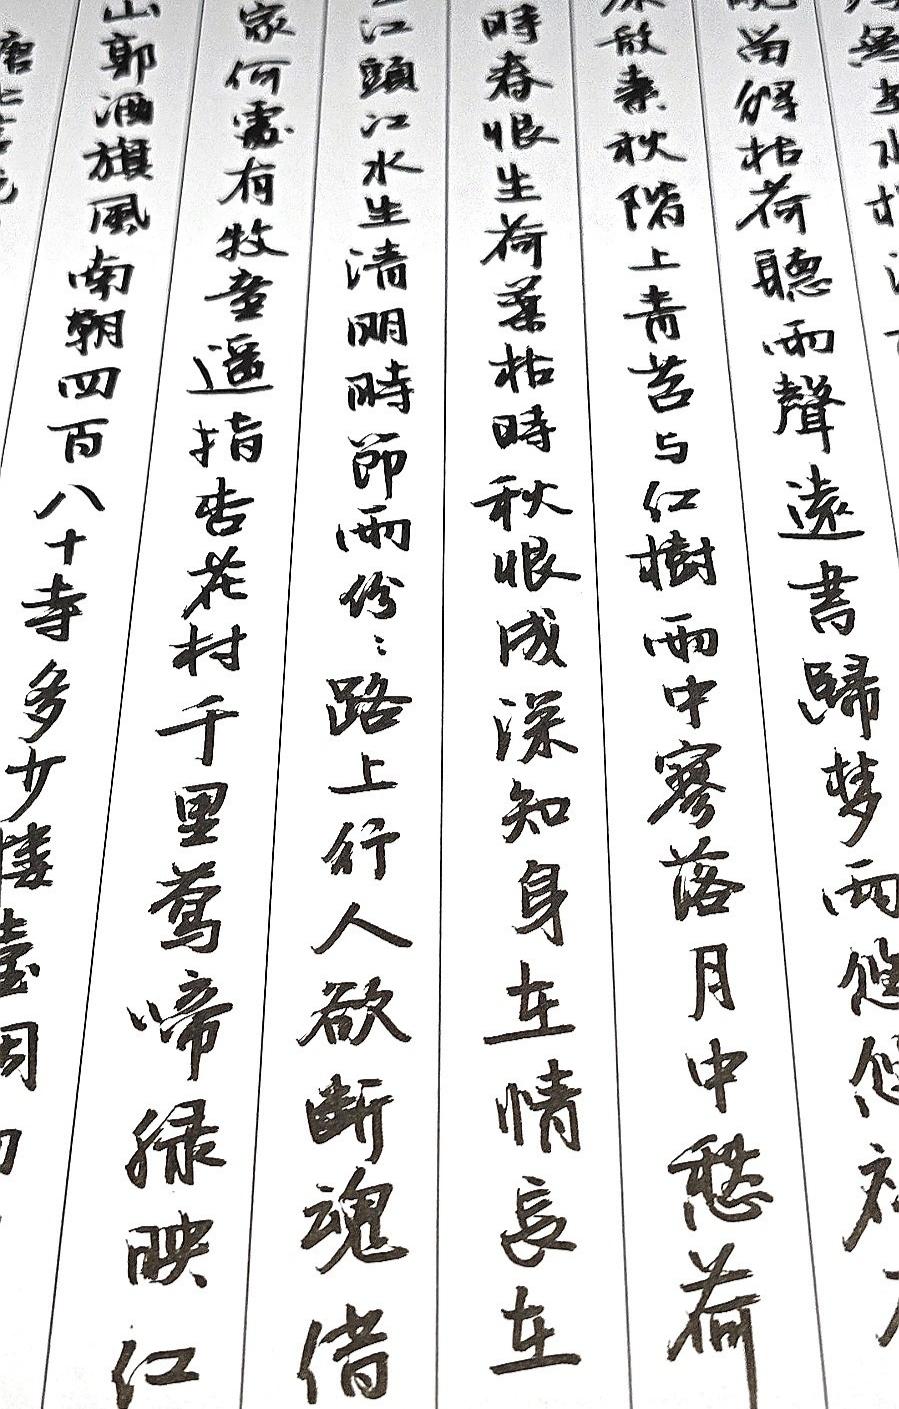 無水
晚留得枯荷聽雨聲遠書歸梦两悠悠
床敵素秋階上青苔与红樹雨中寥落月中愁荷
時春恨生荷葉枯時秋恨成深知身在情長在
江頭江水生清明時節雨份〻路上行人欲断魂借
家何處有牧童遥指杏花村千里鶯啼緑映红
山郭酒旗風南朝四百八十寺多少楼臺